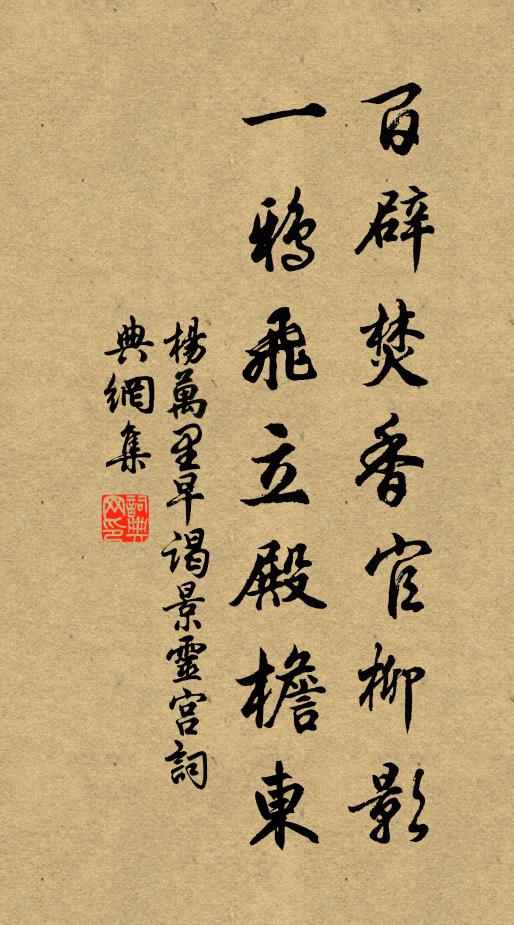 百辟焚香官柳影
一鴉飛立殿檐東
楊萬里早謁景靈宮詞
典網集
詞典網印